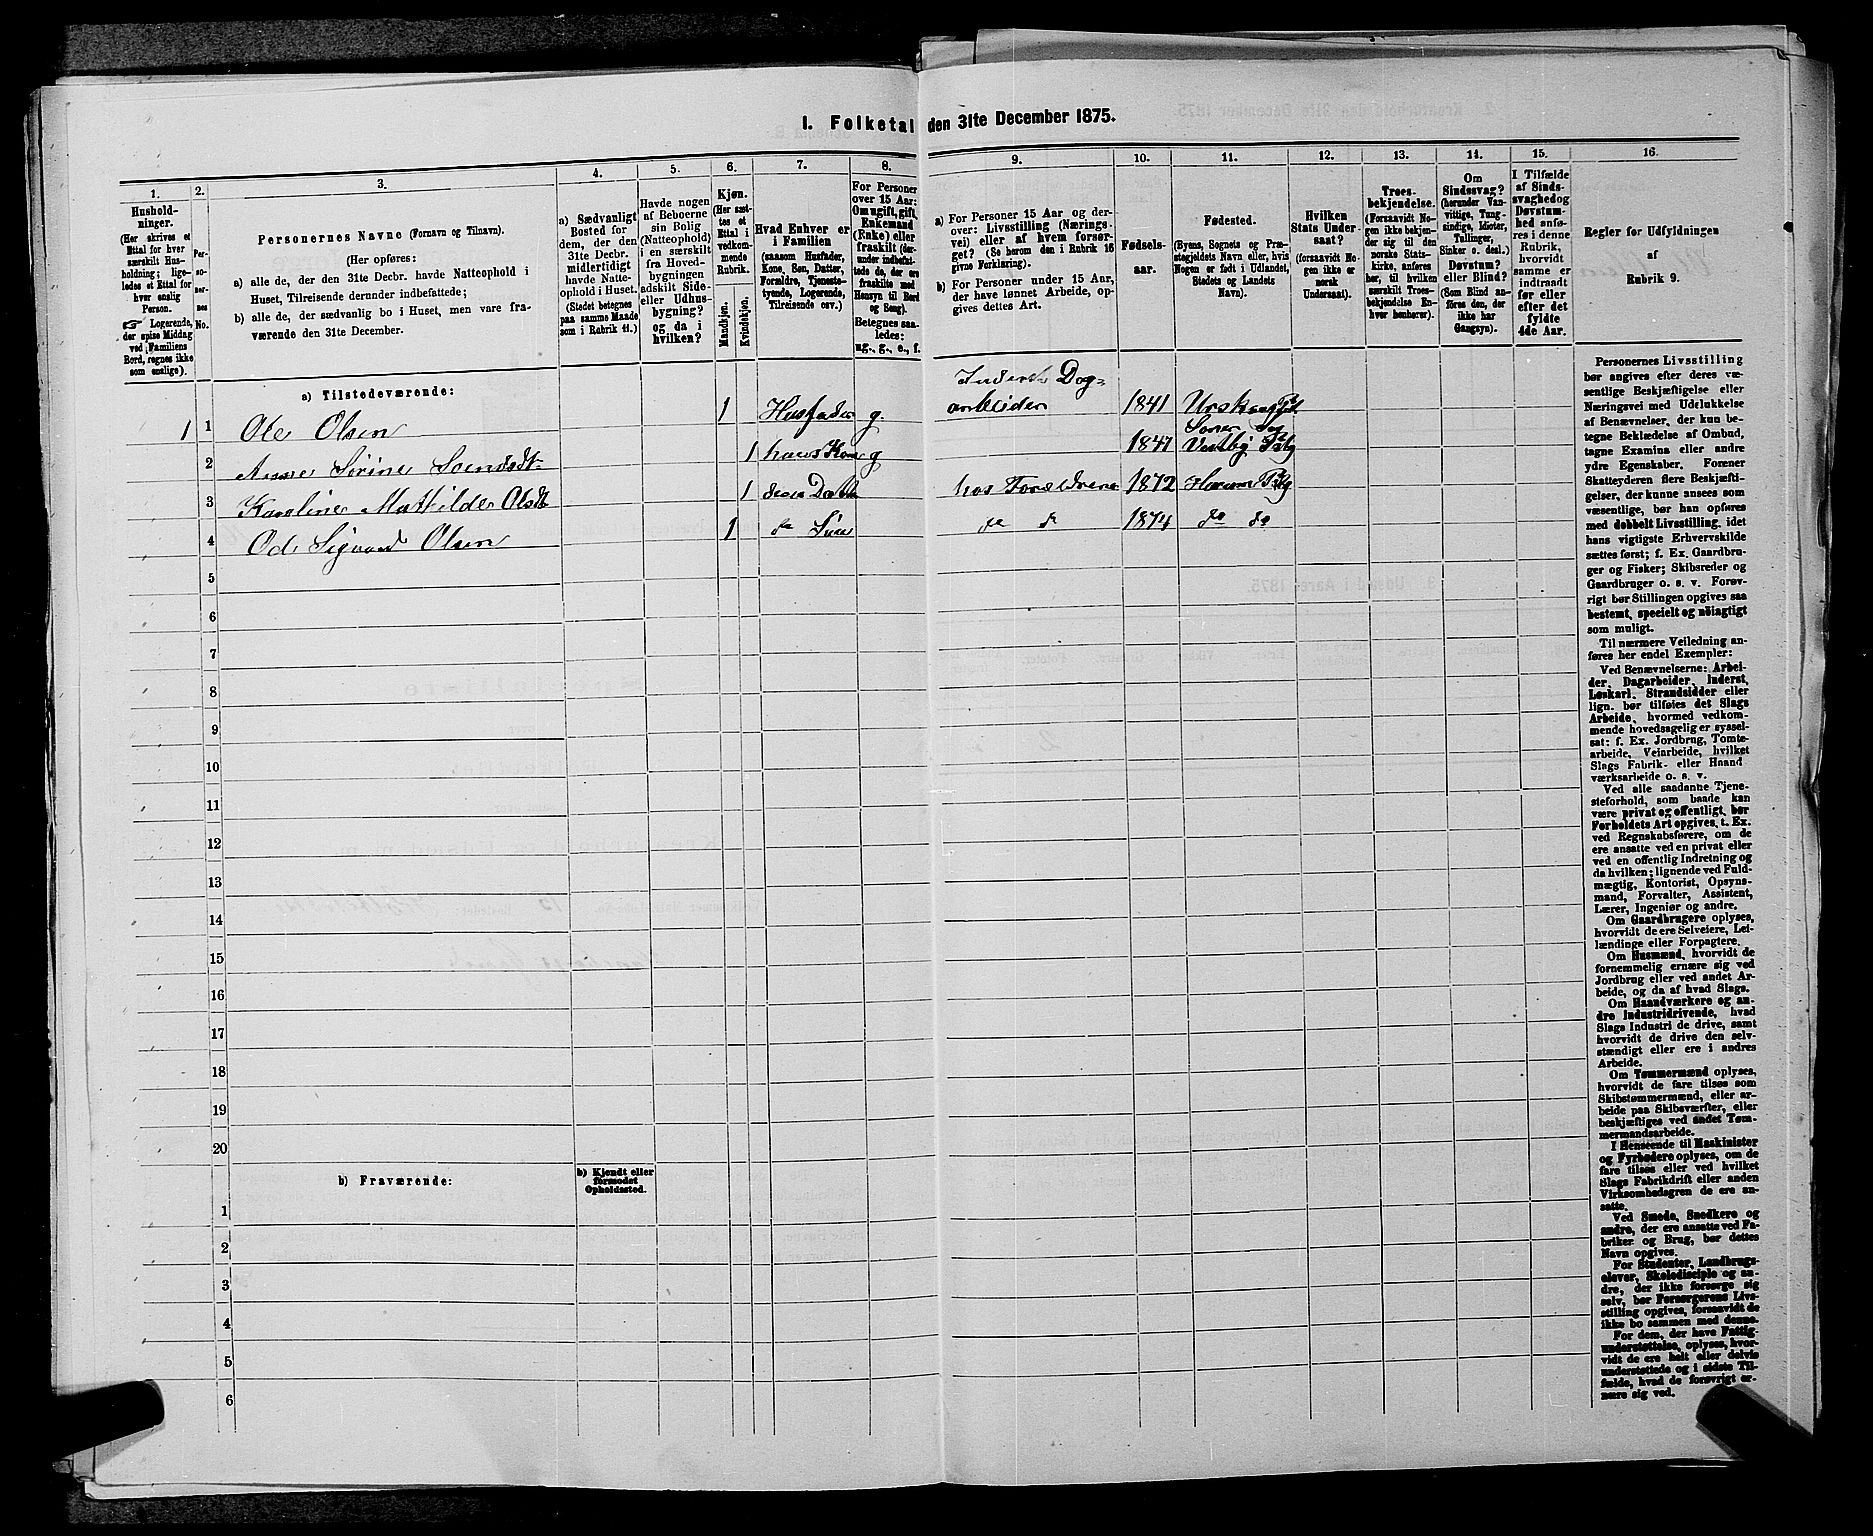 I. Folketal den 31te December 1875.
1. 2. 3. 4. 5. 6. 7. 8. 9. 10. 11. 12. 13. 14. 15. 16.
Hushold-
ninger.
(Her skrives et
Ettal for hver
særskilt Hus-
holdning; lige-
ledes et Ettal for
hver enslig
Person.
☞ Logerende,
der spise Middag
ved Familiens
Bord, regnes ikke
som enslige).
Per-
so-
ner-
nes
No.
Personernes Navne (Fornavn og Tilnavn).
(Her opføres:
a) alle de, der den 31te Decbr. havde Natteophold i
Huset, Tilreisende derunder indbefattede;
b) alle de, der sædvanlig bo i Huset, men vare fra-
værende den 31te December.
a) Sædvanligt
Bosted for
dem, der den
31te Decbr.
midlertidigt
havde Natte-
ophold i Huset.
(Stedet betegnes
paa samme Maade
som i Rubrik 11.)
Havde nogen
af Beboerne
sin Bolig
(Natteophold)
i en særskilt
fra Hoved-
bygningen
adskilt Side-
eller Udhus-
bygning?
og da i
hvilken?
Kjøn.
(Her sæt-
tes et
Ettal i
vedkom-
mende
Rubrik.
Mandkjøn.
Kvindekjøn.
Hvad Enhver er
i Familien
(saasom Husfader,
Kone, Søn, Datter,
Forældre, Tjeneste-
tyende, Logerende,
Tilreisende osv.)
For Personer
over 15 Aar:
Om ugift, gift,
Enkemand
(Enke) eller
fraskilt (her-
under indbefat-
tede de, der ere
fraskilte med
Hensyn til Bord
og Seng).
Betegnes saa-
ledes:
ug., g., e., f.
a) For Personer 15 Aar og der-
over: Livsstilling (Nærings-
vei) eller af hvem forsør-
get? (Se herom den i Rubrik 16
givne Forklaring).
b) For Personer under 15 Aar,
der have lønnet Arbeide, op-
gives dettes Art.
Fødsels-
aar.
Fødested.
(Byens, Sognets og Præ-
stegjeldets Navn eller, hvis
Nogen er født i Udlandet,
Stedets og Landets
Navn).
Hvilken
Stats Under-
saat?
(forsaavidt No-
gen ikke er
norsk
Undersaat).
Troes-
bekjendelse.
(Forsaavidt No-
gen ikke bekjen-
der sig til den
norske Stats-
kirke, anføres
her, til hvilken
særskilt Troes-
bekjendelse En-
hver henhører).
Om
Sindssvag?
(herunder Van-
vittige, Tung-
sindige, Idioter,
Tullinger,
Sinker o. desl.)
Døvstum?
eller Blind?
(Som Blind an-
føres den, der
ikke har
Gangsyn).
I Tilfælde
af Sinds-
svaghed og
Døvstum-
hed anfø-
res i denne
Rubrik,
hvorvidt
samme er
indtraadt
før eller
efter det
fyldte
4de Aar.
Regler for Udfyldningen
af
Rubrik 9.
a) Tilstedeværende:
Inderst Dag-
1 1 Ole Olsen 1 Husfader g. arbeider 1841 Urskoug Pgl.
Soner Sog
2 Anne Sørine Svendsdt. 1 hans Kone g 1841 Vestby Pstg
3 Karoline Mathilde Olsdt 1 deres Datt. hos Forældrene 1872 Pstg
4 Sigvard Olsen 1 do Søn do do 1874 do do
5
6
7
8
9
10
11
12
13
14
15
16
17
18
19
20
b) Fraværende:
b) Kjendt eller
formodet
Opholdssted.
1
2
3
4
5
6
Personernes Livsstilling
bør angives efter deres væ-
sentlige Beskjæftigelse eller
Næringsvei med Udelukkelse
af Benævnelser, der kun be-
tegne Beklædelse af Ombud,
tagne Examina eller andre
ydre Egenskaber. Forener
Skatteyderen flere Beskjæfti-
gelser, der kunne ansees som
væsentlige, bør han opføres
med dobbelt Livsstilling, idet
hans vigtigste Erhvervskilde
sættes først; f. Ex. Gaardbru-
ger og Fisker; Skibsreder og
Gaardbruger o. s. v. Forøv-
rigt bør Stillingen opgives saa
bestemt, specielt og nøiagtigt
som muligt.
Til nærmere Veiledning an-
føres her endel Exempler:
Ved Benævnelserne: Arbei-
der, Dagarbeider, Inderst,
Løskarl, Strandsidder eller
lign. bør tilføies det Slags
Arbeide, hvormed vedkom-
mende hovedsagelig er syssel-
sat: f. Ex. Jordbrug, Tomte-
arbeide, Veiarbeide, hvilket
Slags Fabrik- eller Haand
værksarbeide o. s. v.
Ved alle saadanne Tjene-
steforhold, som baade kan
være privat og offentligt, bør
Forholdets Art opgives, t. Ex.
ved Regnskabsførere, om de
ere ansatte ved en privat eller
ved en offentlig Indretning og
da hvilken; lignende ved Fuld-
mægtig, Kontorist, Opsyns-
mand, Forvalter, Assistent,
Lærer, Ingeniør og andre.
Om Gaardbrugere oplyses,
hvorvidt de ere Selveiere, Lei-
lændinge eller Forpagtere.
Om Husmænd, hvorvidt de
fornemmelig ernære sig ved
Jordbrug eller ved andet Ar-
beide, og da af hvad Slags.
Om Haandværkere og an-
dre Industridrivende, hvad
Slags Industri de drive, samt
hvorvidt de drive den selv-
stændigt eller ere i andres
Arbeide.
Om Tømmermænd oplyses,
hvorvidt de fare tilsøs som
Skibstømmermænd, eller ar-
beide paa Skibsværfter, eller
beskjæftiges ved andet Tøm-
mermandsarbeide.
I Henseende til Maskinister
og Fyrbødere oplyses, om de
fare tilsøs eller ved hvilket
Slags Fabrikdrift eller anden
Virksomhedsgren de ere an-
satte.
Ved Smede, Snedkere og
andre, der ere ansatte ved Fa-
briker og Brug, bør dettes
Navn opgives.
For Studenter, Landbrugs-
elever, Skoledisciple og an-
dre, der ikke forsørge sig
selv, bør Forsørgerens Livs-
stilling opgives, forsaavidt de
ikke bo sammen med denne.
For dem, der have Fattig-
understøttelse, oplyses, hvor-
vidt de ere helt eller delvis
understøttede og i sidste Til-
fælde, hvad de forøvrigt er-
nære sig ved.